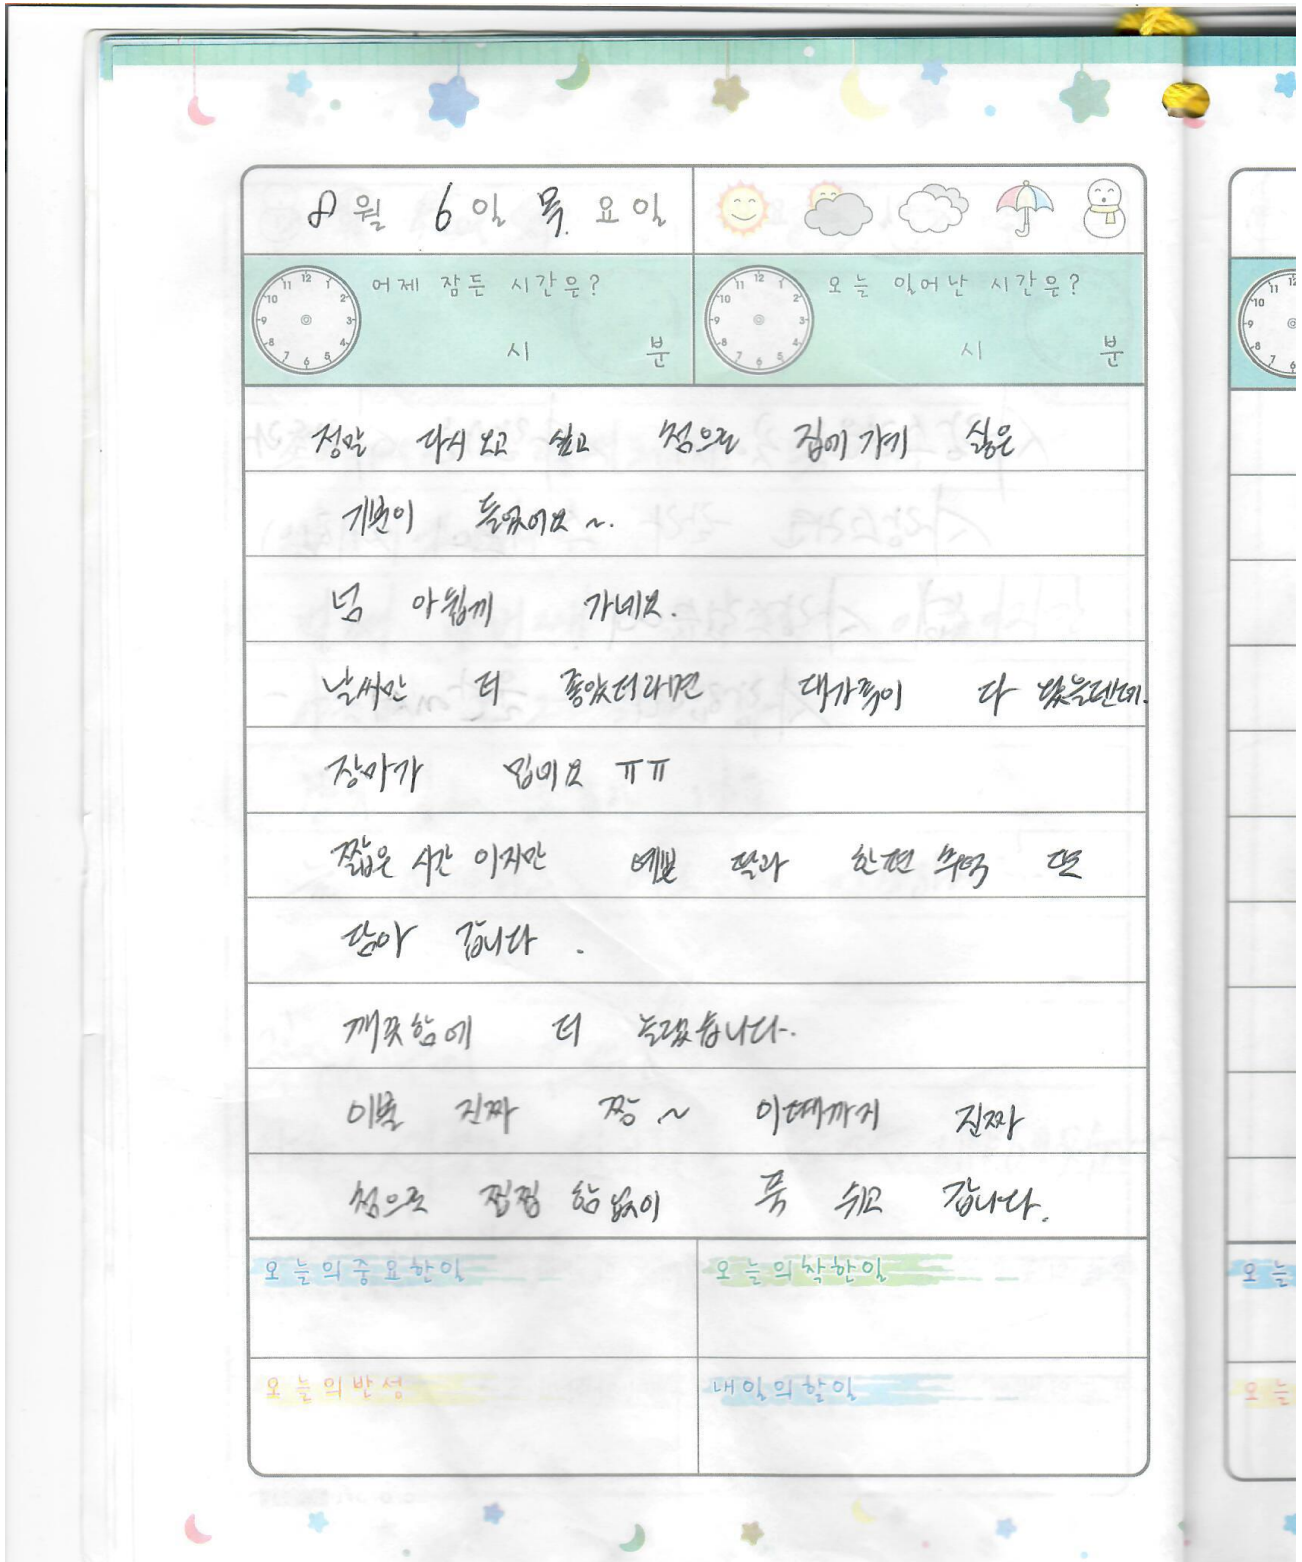 8월 6일 목요일
어제 잠든 시간은?
오늘 일어난 시간은?
시 분
시 분
정말 다시 오고 싶고 첨으로 집에 가기 싫은
기분이 들었어요~.
넘 아쉽게 가네요.
날씨만 더 좋았더라면 대가족이 다 왔을텐데.
장마가 밉네요 ㅠㅠ
짧은 시간 이지만 예쁜 딸과 한편 추억
담아 갑니다.
깨끗함에 더 놀랬습니다.
이불 진짜 짱~ 이때까지 진짜
첨으로 찝찝 함 없이 푹 쉬고 갑니다.
오늘의중요한일
오늘의착한일
오늘의반성
내일의할일